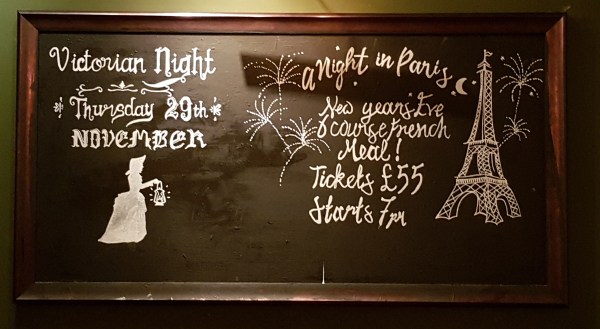 Victorian Night
Thursday 29th
NOVEMBER
A Night in Paris
New years Eve
6 course french
Meal!
Tickets £55
Starts 7pm